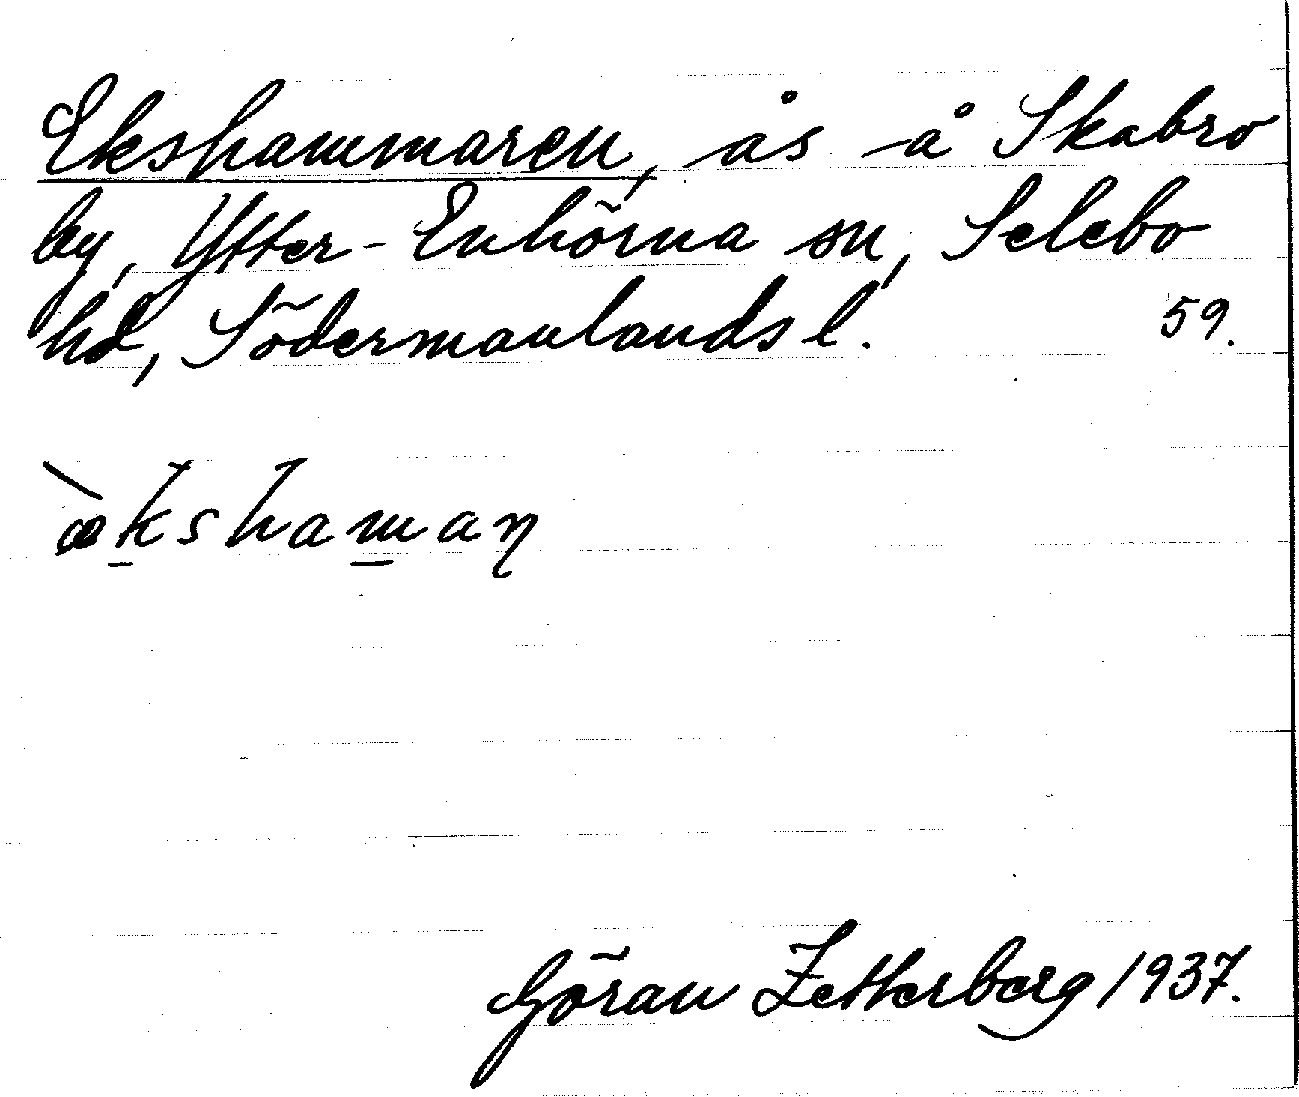 Ekshammaren, ås å Skabro
by, Ytter-Enhörna sn, Selebo
hd, Södermanlands l. 59.
æ̀k̲sham̲aŋ
Göran Zetterberg 1937.